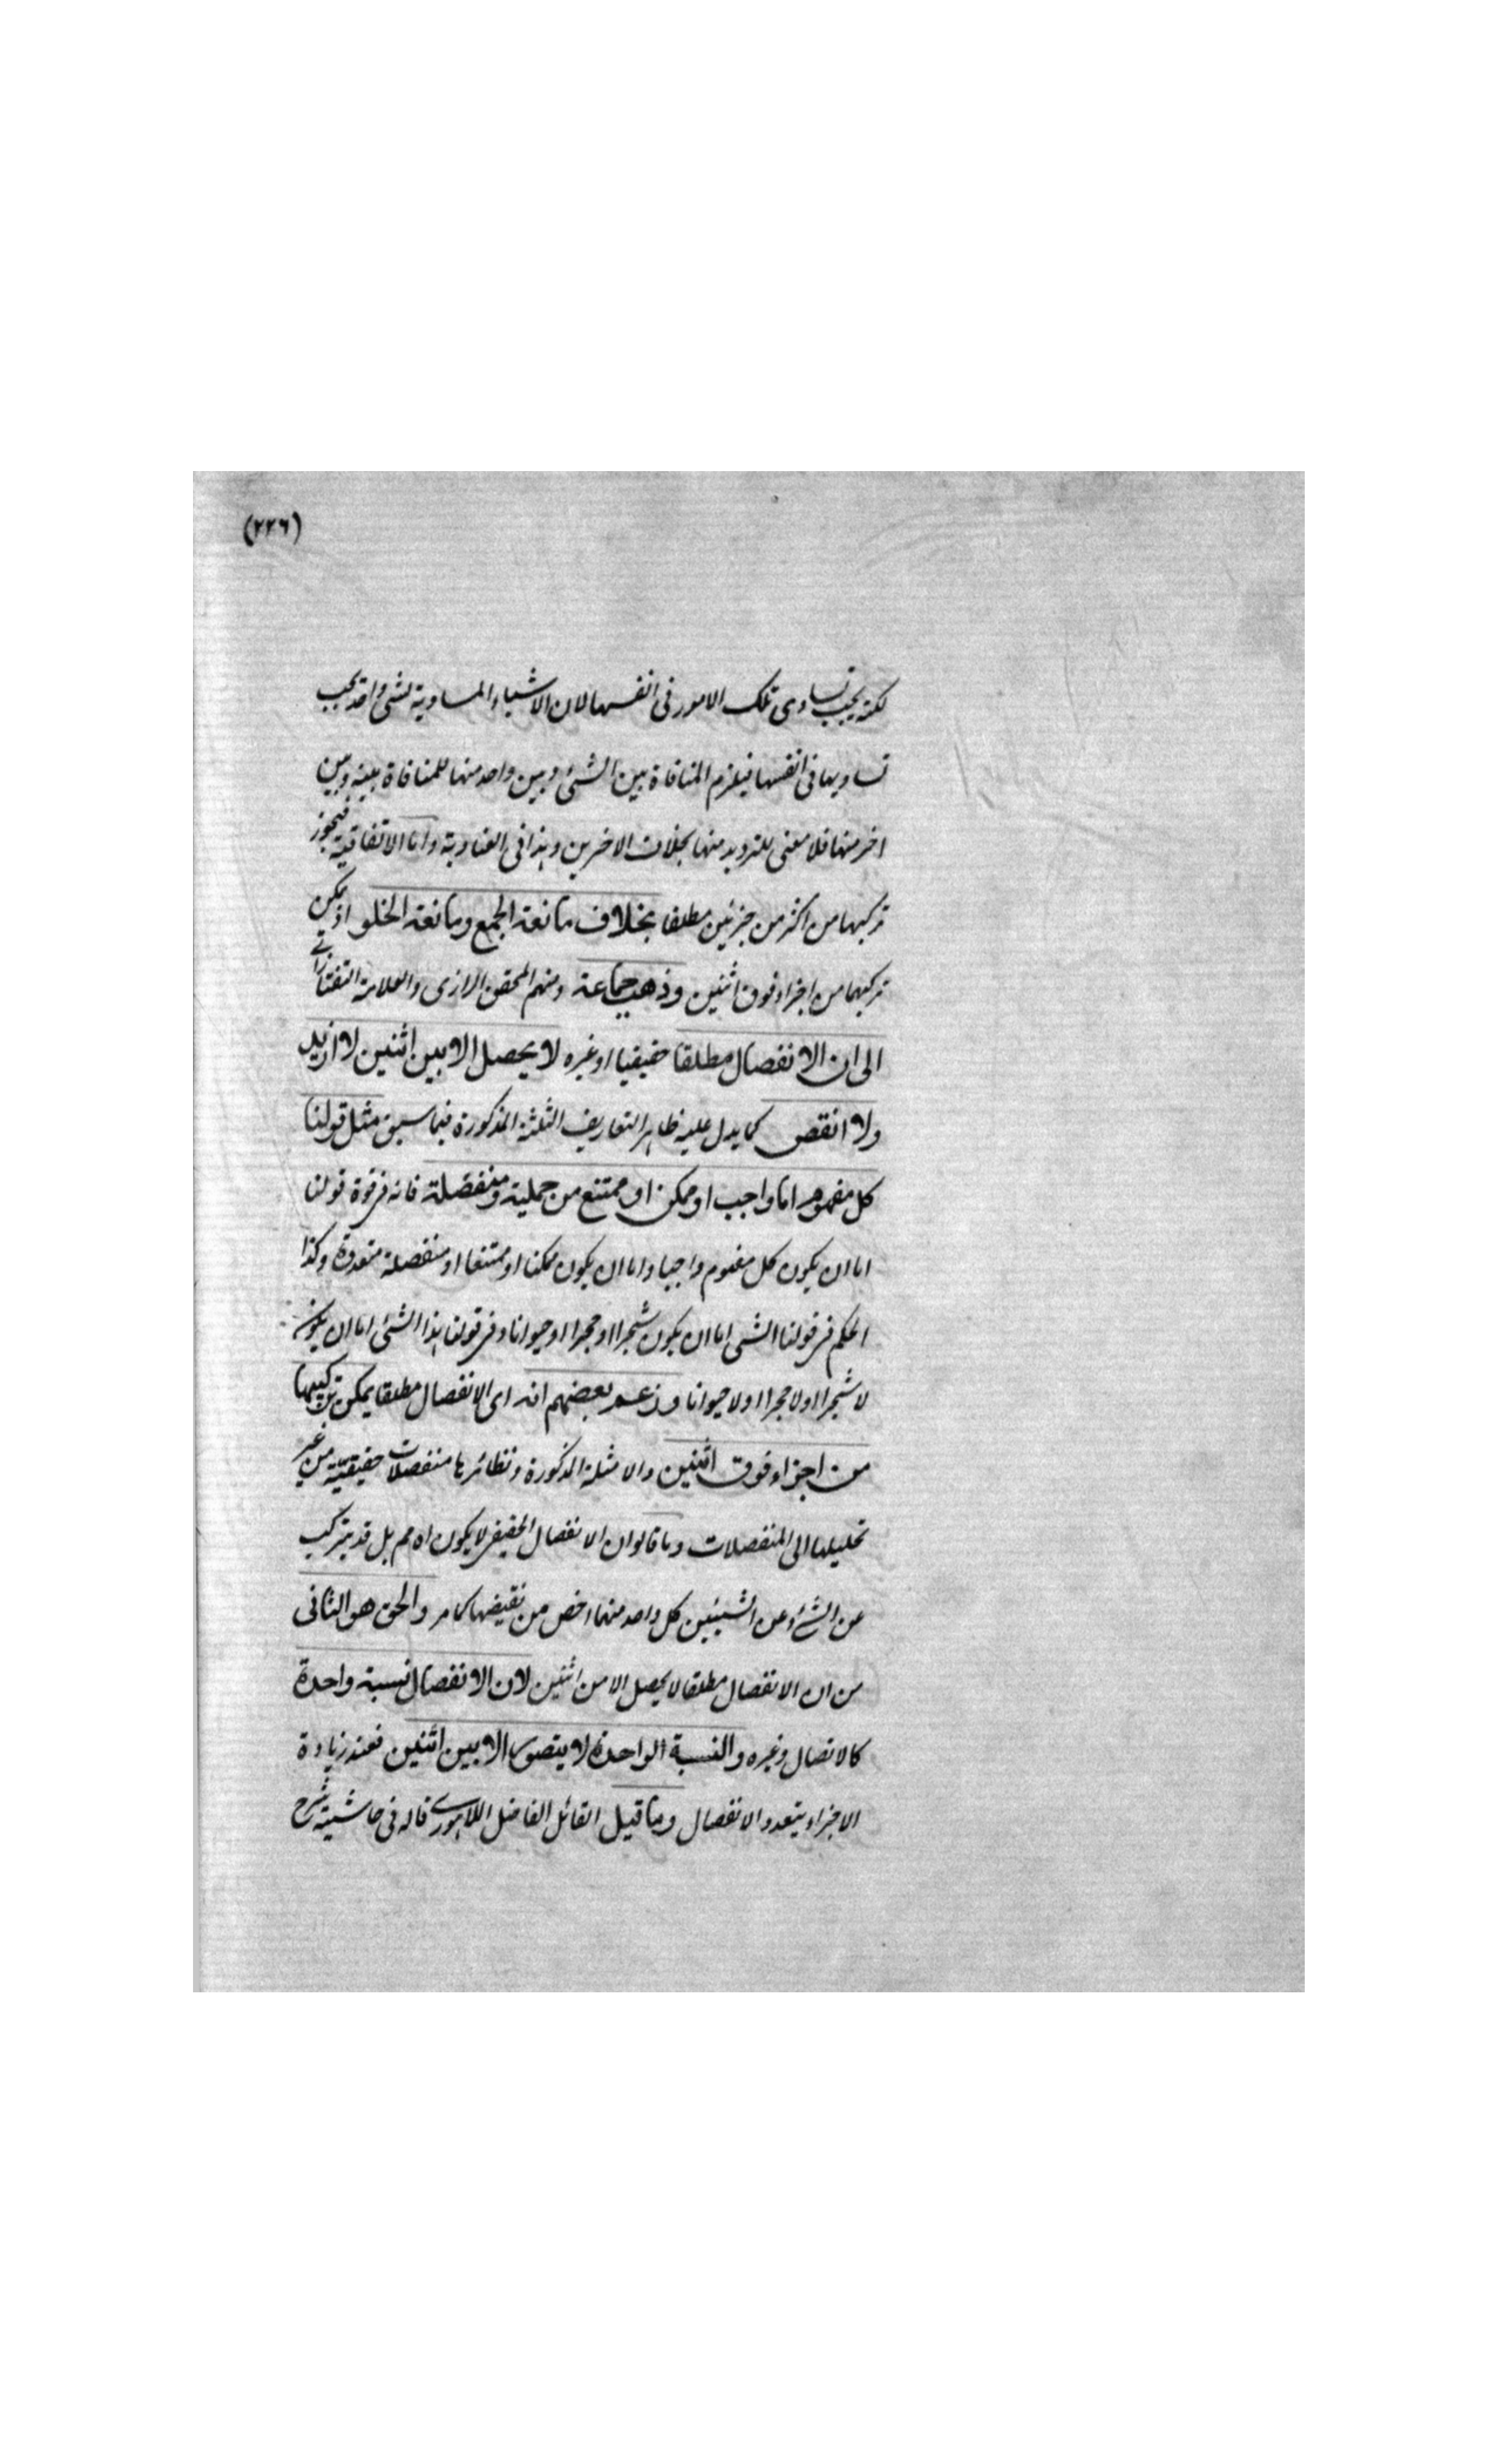 (٢٢٦)
لكنه يجب تساوى تلك الامور فى انفسها لان الاشياء المساوية لشئ واحد يجب
تساويها فى انفسها فيلزم المنافاة بين الشئ وبين واحد منها للمنافاة بينه وبين
اخر منها فلا معنى للترديد منها بخلاف الاخرين وهذا فى العنادية واما الاتفاقية فيجوز
تركبها من اكثر من جزئين مطلقا بخلاف مانعة الجمع ومانعة الخلو اذ يمكن
تركبهما من اجزاء فوق اثنين وذهب جماعة ومنهم المحقق الرازى والعلامة التفتازانے
الى ان الانفصال مطلقا حقيقيا او غيره لا يحصل الا بين اثنين لا ازيد
ولا انقص كما يدل عليه ظاهر التعاريف الثلثة المذكورة فيما سبق مثل قولنا
كل مفهوم اما واجب او ممكن او ممتنع من حملية ومنفصلة فانه فى قوة قولنا
اما ان يكون كل مفهوم واجبا واما ان يكون ممكنا او ممتنعا او منفصلة متعددة وكذا
الحكم فى قولنا الشئ اما ان يكون شجرا او حجرا او حيوانا وفى قولنا هذا الشئ اما ان يكون
لا شجرا او لا حجرا او لا حيوانا وزعم بعضهم انه اى الانفصال مطلقا يمكن تركيبها
من اجزاء فوق اثنين والامثلة المذكورة ونظائرها منفصلات حقيقية من غير
تحليلها الى المنفصلات وما قالوا ان الانفصال الحقيقى لا يكون اه مم بل قد يتركب
عن الشئ وعن الشيئين كل واحد منهما اخص من نقيضها كما مر والحق هو الثانى
من ان الانفصال مطلقا لا يحصل الا من اثنين لان الانفصال نسبة واحدة
كالاتصال وغيره والنسبة الواحدة لا يتصور الا بين اثنين فعند زيادة
الاجزاء يتعدد الانفصال وما قيل القائل الفاضل اللاهورے قاله فى حاشية شرح